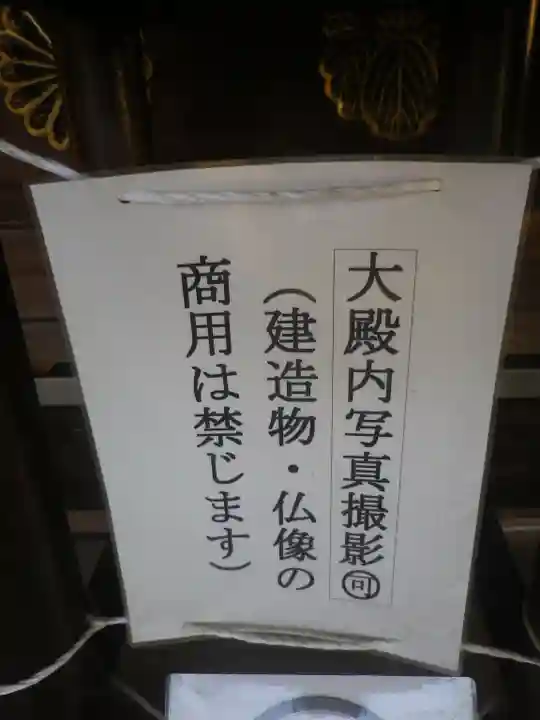 大殿内写真撮影㊢
（建造物・仏像の
商用は禁じます）